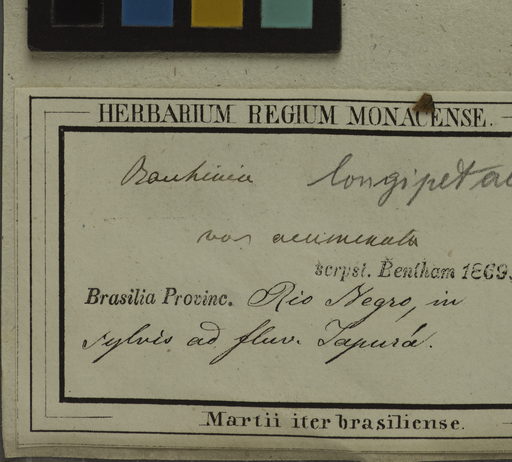 HERBARIUM REGIUM MONACENSE.
Bauhinia longipetal
var acuminata
scrpst. Bentham 1869.
Brasilia Provinc. Rio Negro, in
sylvis ad fluv. Iapurá.
Martii iter brasiliense.